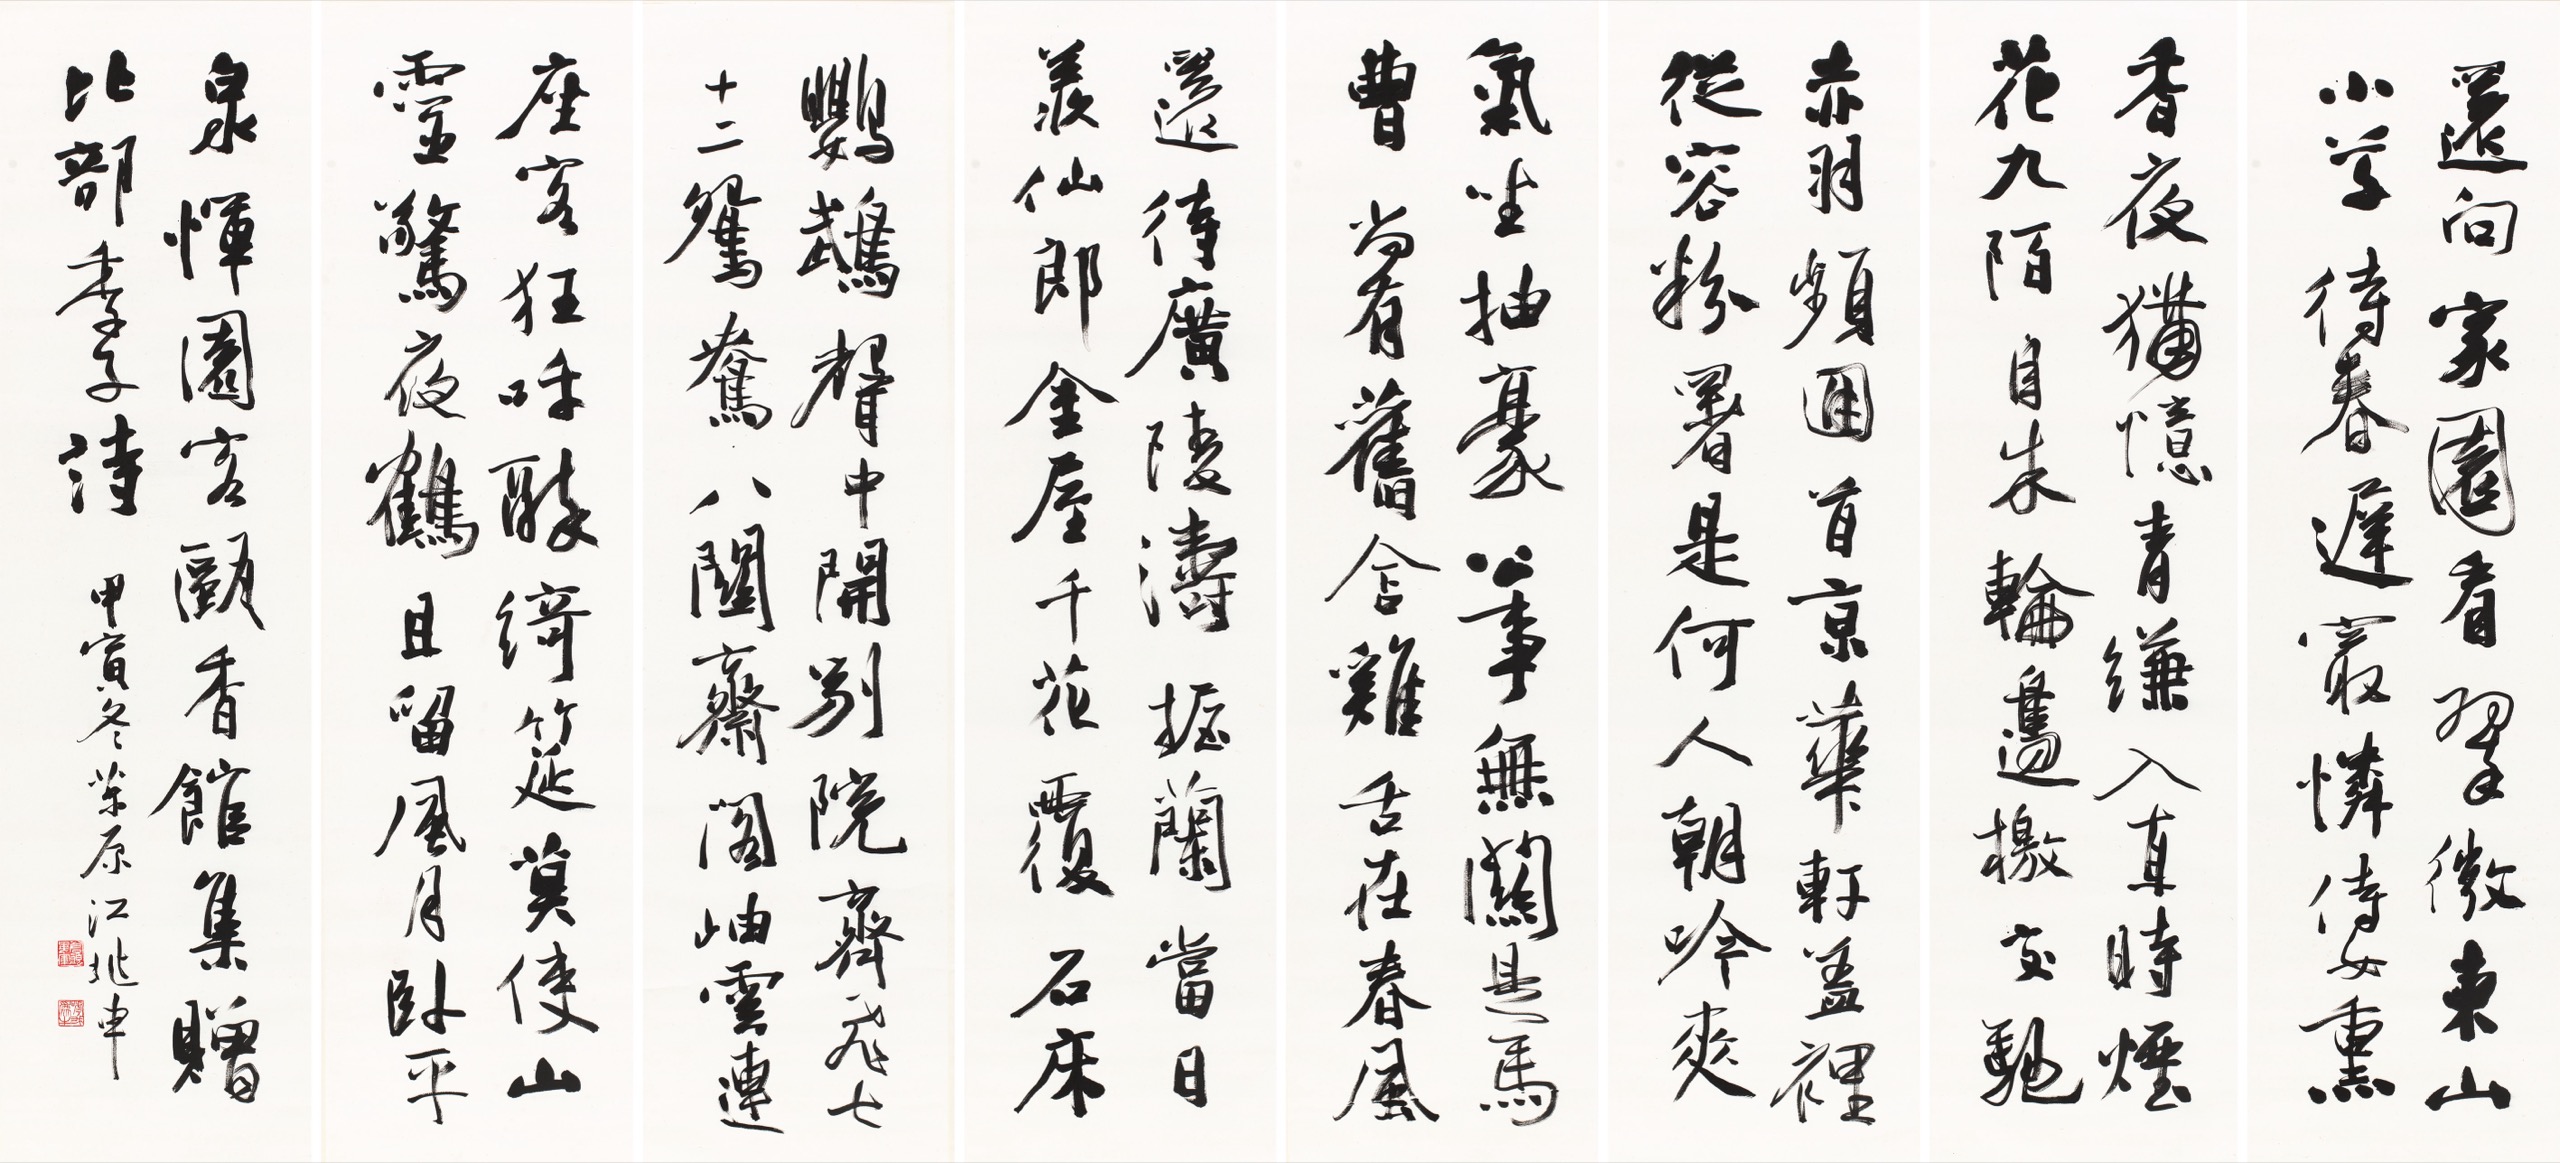 還向家園看翠微東山
小草待春遲最憐侍女熏
香夜猶憶青縑入直時煙
花九陌自朱輪邊檄交馳
赤羽頻迴首京華軒蓋裡
從容粉署是何人朝吟爽
氣坐抽豪公事無關是馬
曹尚有舊含雞舌在春風
還待廣陵濤握蘭當日
羨仙郎金屋千花覆石床
鸚鵡聲中開別院齊飛七
十二鴛鴦八關齋閣岫雲連
座客狂呼醉綺筵莫使山
靈驚夜鶴且留風月臥平
泉惲園客甌香館集贈
比部季子詩 甲寅冬茮原江兆申